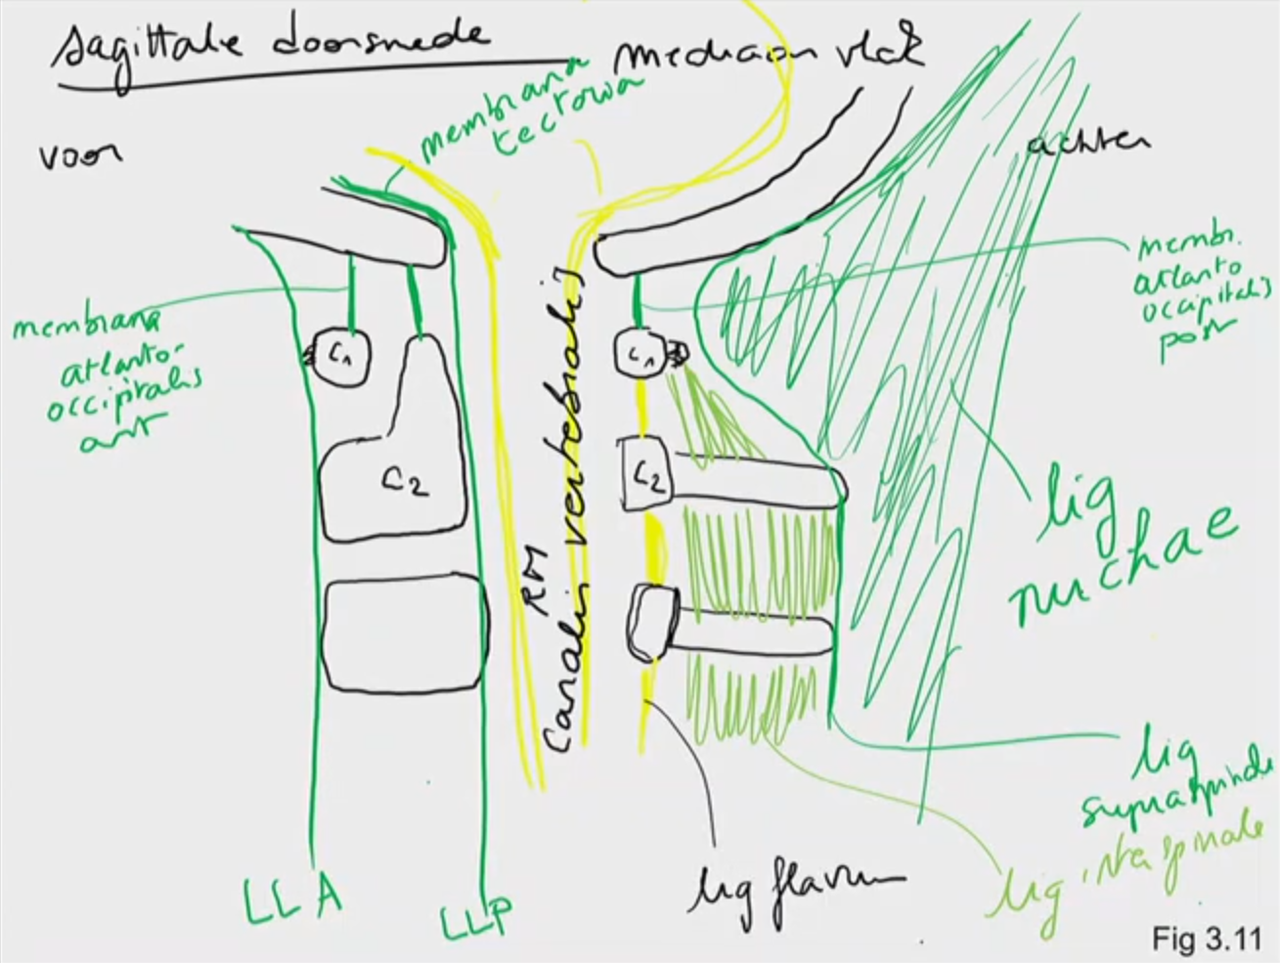 sagittale doorsnede
mediaan vlak
membrana
tectoria
voor
achter
membrana
atlanto-
occipitalis
ant
membr.
atlanto
occipitalis
post
C1
C1
C2
C2
RM
Canalis vertebralis
lig
nuchae
lig
supraspinale
lig interspinale
lig flavum
LLA
LLP
Fig 3.11